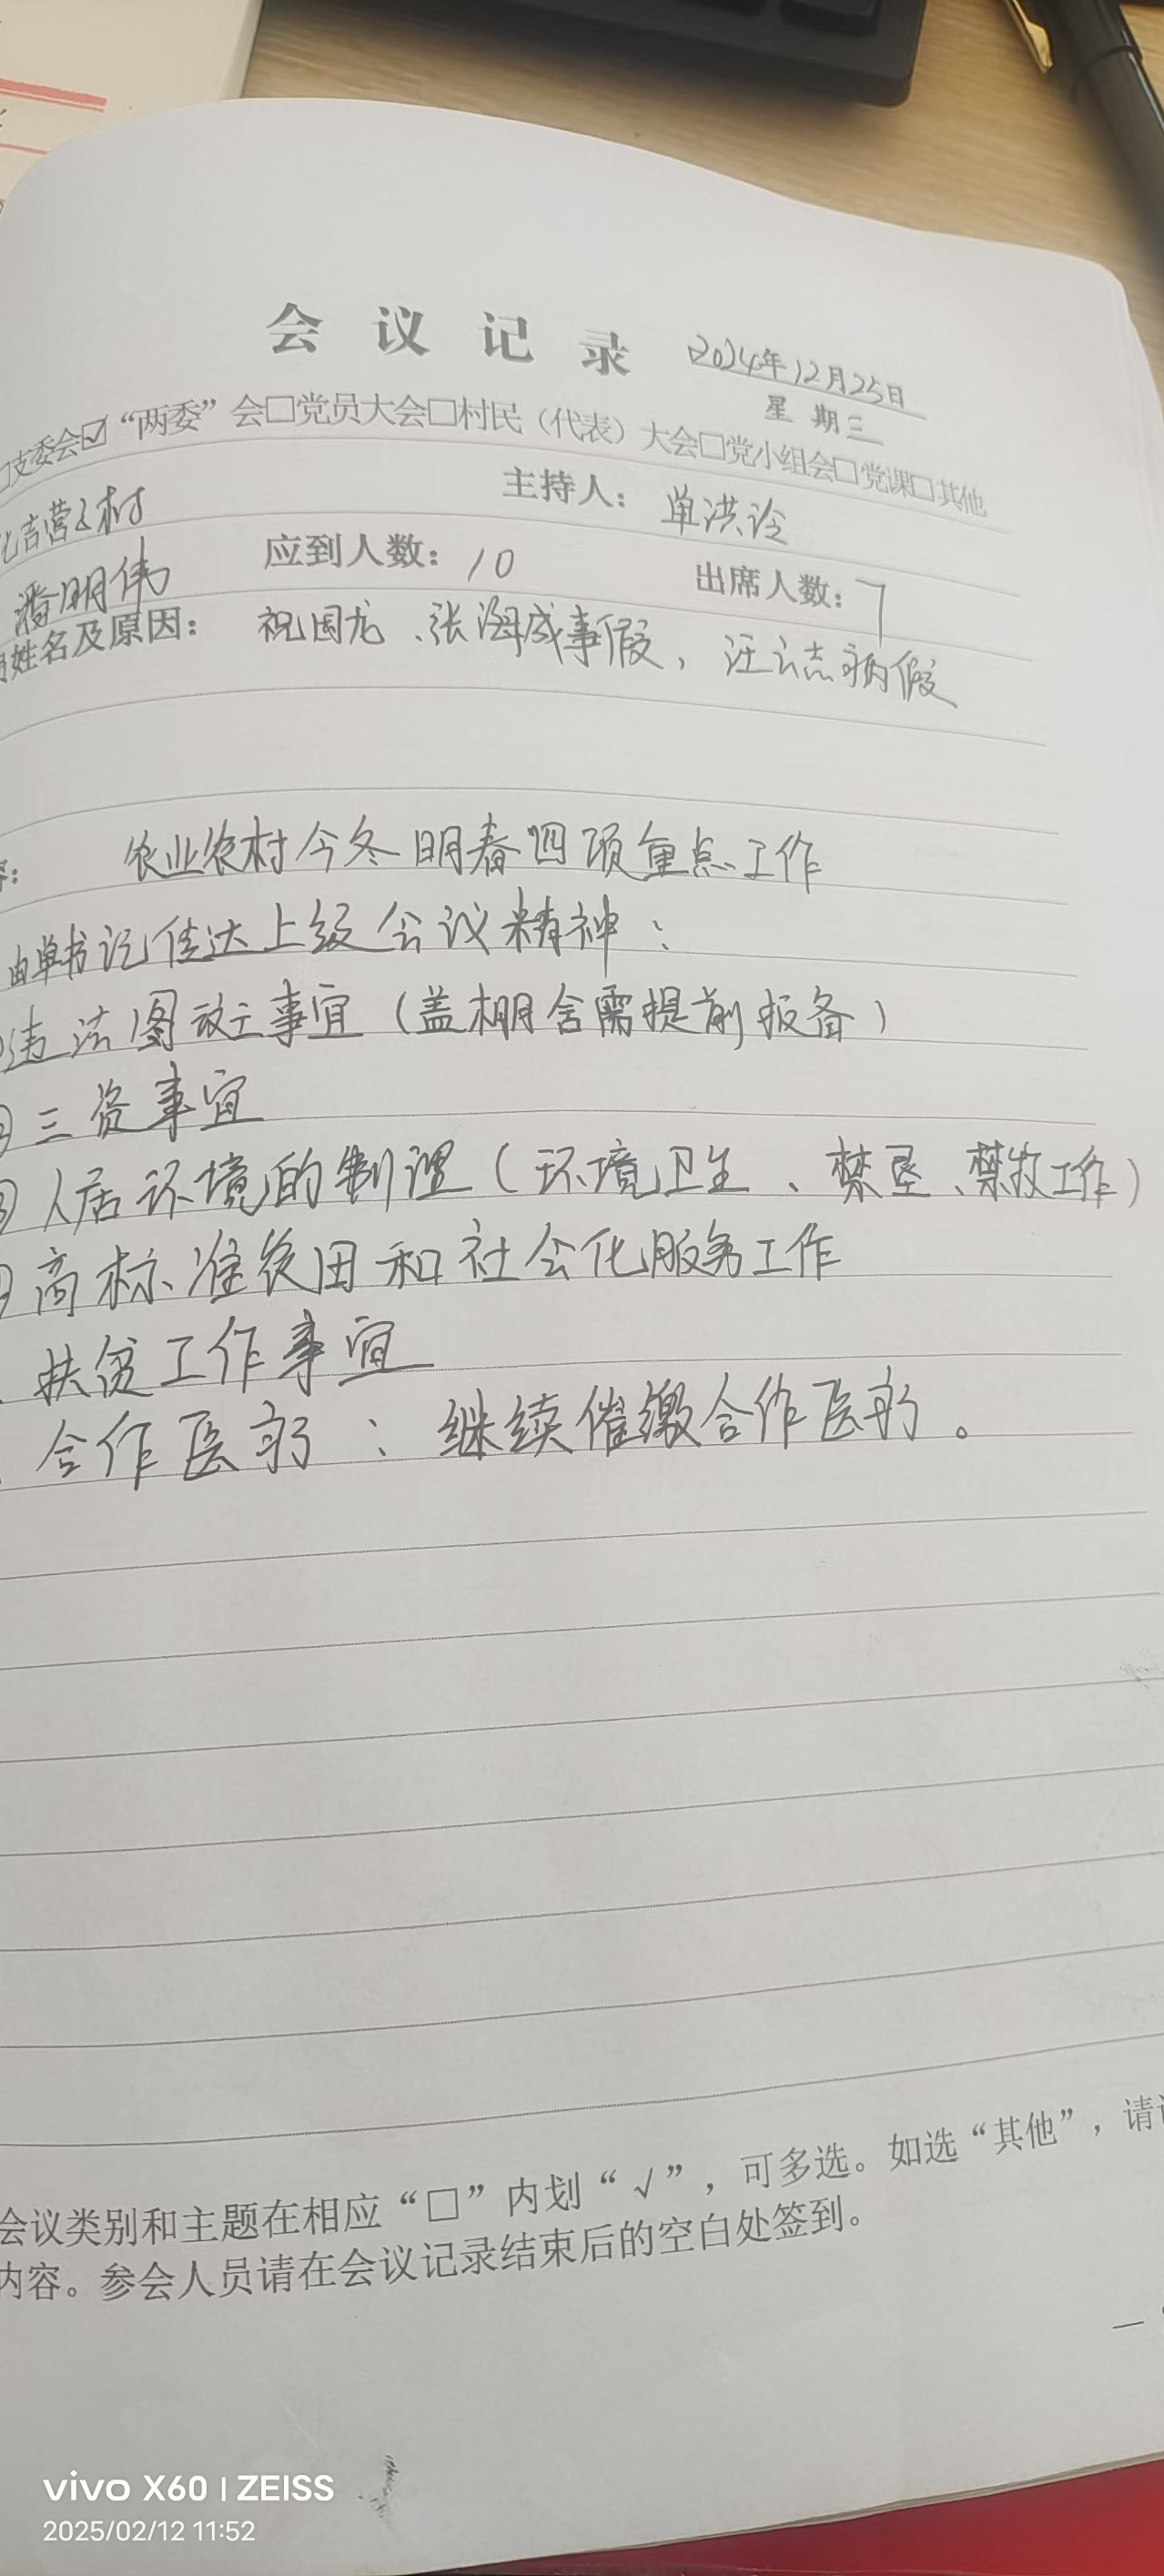 会议记录 2024年12月25日
星期三
□支委会☑“两委”会□党员大会□村民（代表）大会□党小组会□党课□其他
吉营子村 主持人：单洪玲
潘明伟 应到人数：10 出席人数：7
姓名及原因：祝国龙、张海成事假，汪云志病假
农业农村今冬明春四项重点工作
由单书记传达上级会议精神：
违法图斑事宜（盖棚舍需提前报备）
三资事宜
人居环境的制理（环境卫生、禁垦、禁牧工作）
高标准农田和社会化服务工作
扶贫工作事宜
合作医疗：继续催缴合作医疗。
会议类别和主题在相应“□”内划“√”，可多选。如选“其他”，请
内容。参会人员请在会议记录结束后的空白处签到。
vivo X60 | ZEISS
2025/02/12 11:52